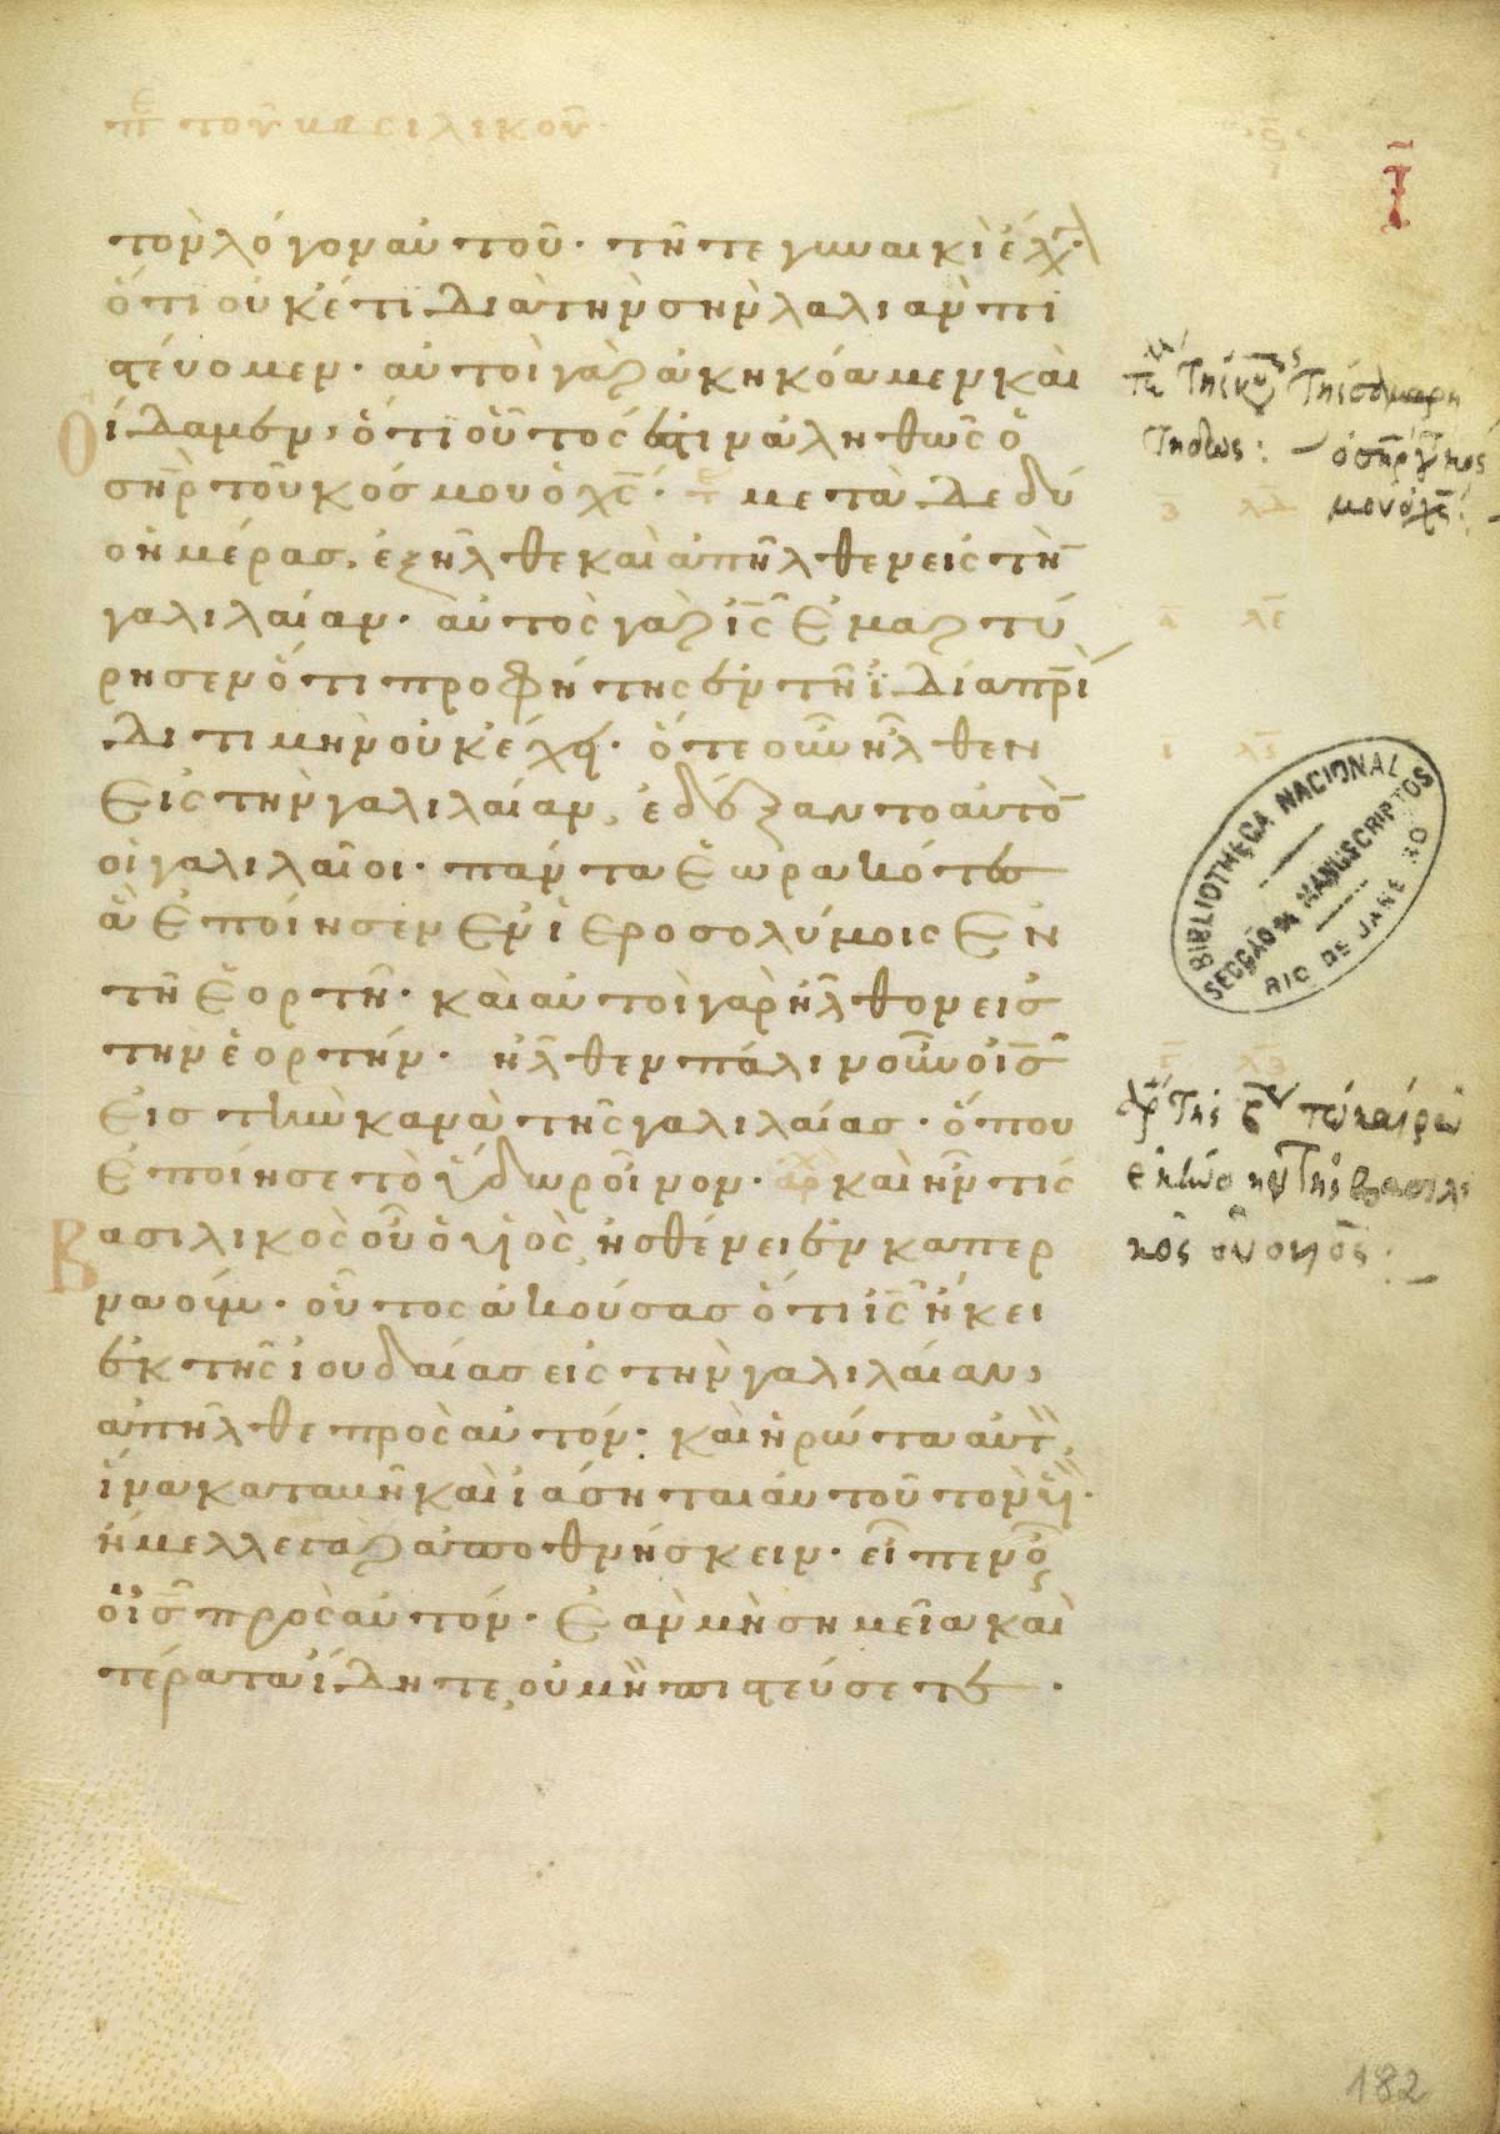 ε π τοῦ βασιλικοῦ
τὸν λόγον αὐτοῦ· τῆ τε γυναικὶ ἔλεγον
ὅτι οὐκέτι διὰ τὴν σὴν λαλιὰν πι
στεύομεν· αὐτοὶ γὰρ ἀκηκόαμεν καὶ
οἴδαμεν, ὅτι οὗτός ἐστιν ἀληθῶς ὁ
σ̅η̅ρ̅ τοῦ κόσμου ὁ χ̅ς̅· μετὰ δὲ δύ
ο ἡμέρας, ἐξῆλθε καὶ ἀπῆλθεν εἰς τὴν
γαλιλαίαν· αὐτὸς γὰρ ι̅ς̅ ἐμαρτύ
ρησεν ὅτι προφήτης ἐν τῆ ἰδία πρ̅ι̅
δι τιμὴν οὐκ ἔχει· ὅτε οὖν ἦλθεν
εἰς τὴν γαλιλαίαν, ἐδέξαντο αὐτὸν
οἱ γαλιλαῖοι· πάντα ἑωρακότες
ἃ ἐποίησεν ἐν ἱεροσολύμοις ἐν
τῆ ἑορτῆ· καὶ αὐτοὶ γὰρ ἦλθον εἰς
τὴν ἑορτήν· ἦλθεν πάλιν οὖν ὁ ι̅ς̅
εἰς τὴν κανὰ τῆς γαλιλαίας· ὅπου
ἐποίησε τὸ ὕδωρ οἶνον· καὶ ἦν τὶς
βασιλικὸς οὗ ὁ υἱὸς ἠσθένει ἐν καπερ
ναούμ· οὗτος ἀκούσας ὅτι ι̅ς̅ ἥκει
ἐκ τῆς ἰουδαίας εἰς τὴν γαλιλαίαν,
ἀπῆλθε πρὸς αὐτόν· καὶ ἠρώτα αὐτ,
ἵνα καταβῆ καὶ ἰάσηται αὐτοῦ τὸν υἱ·
ἤμελλε γὰρ ἀποθνήσκειν· εἶπεν οὖν
ὁ ι̅ς̅ πρὸς αὐτόν· ἐὰν μὴ σημεῖα καὶ
τέρατα ἴδητε, οὐ μὴ πιστεύσετε·
ὁ σ̅η̅ρ̅
μου ὁ χ̅ς̅
τῶ καιρῶ
βασιλι
κὸς οὗ ὁ υἱὸς
BIBLIOTHECA NACIONAL
SECÇÃO DE MANUSCRIPTOS
RIO DE JANEIRO
182